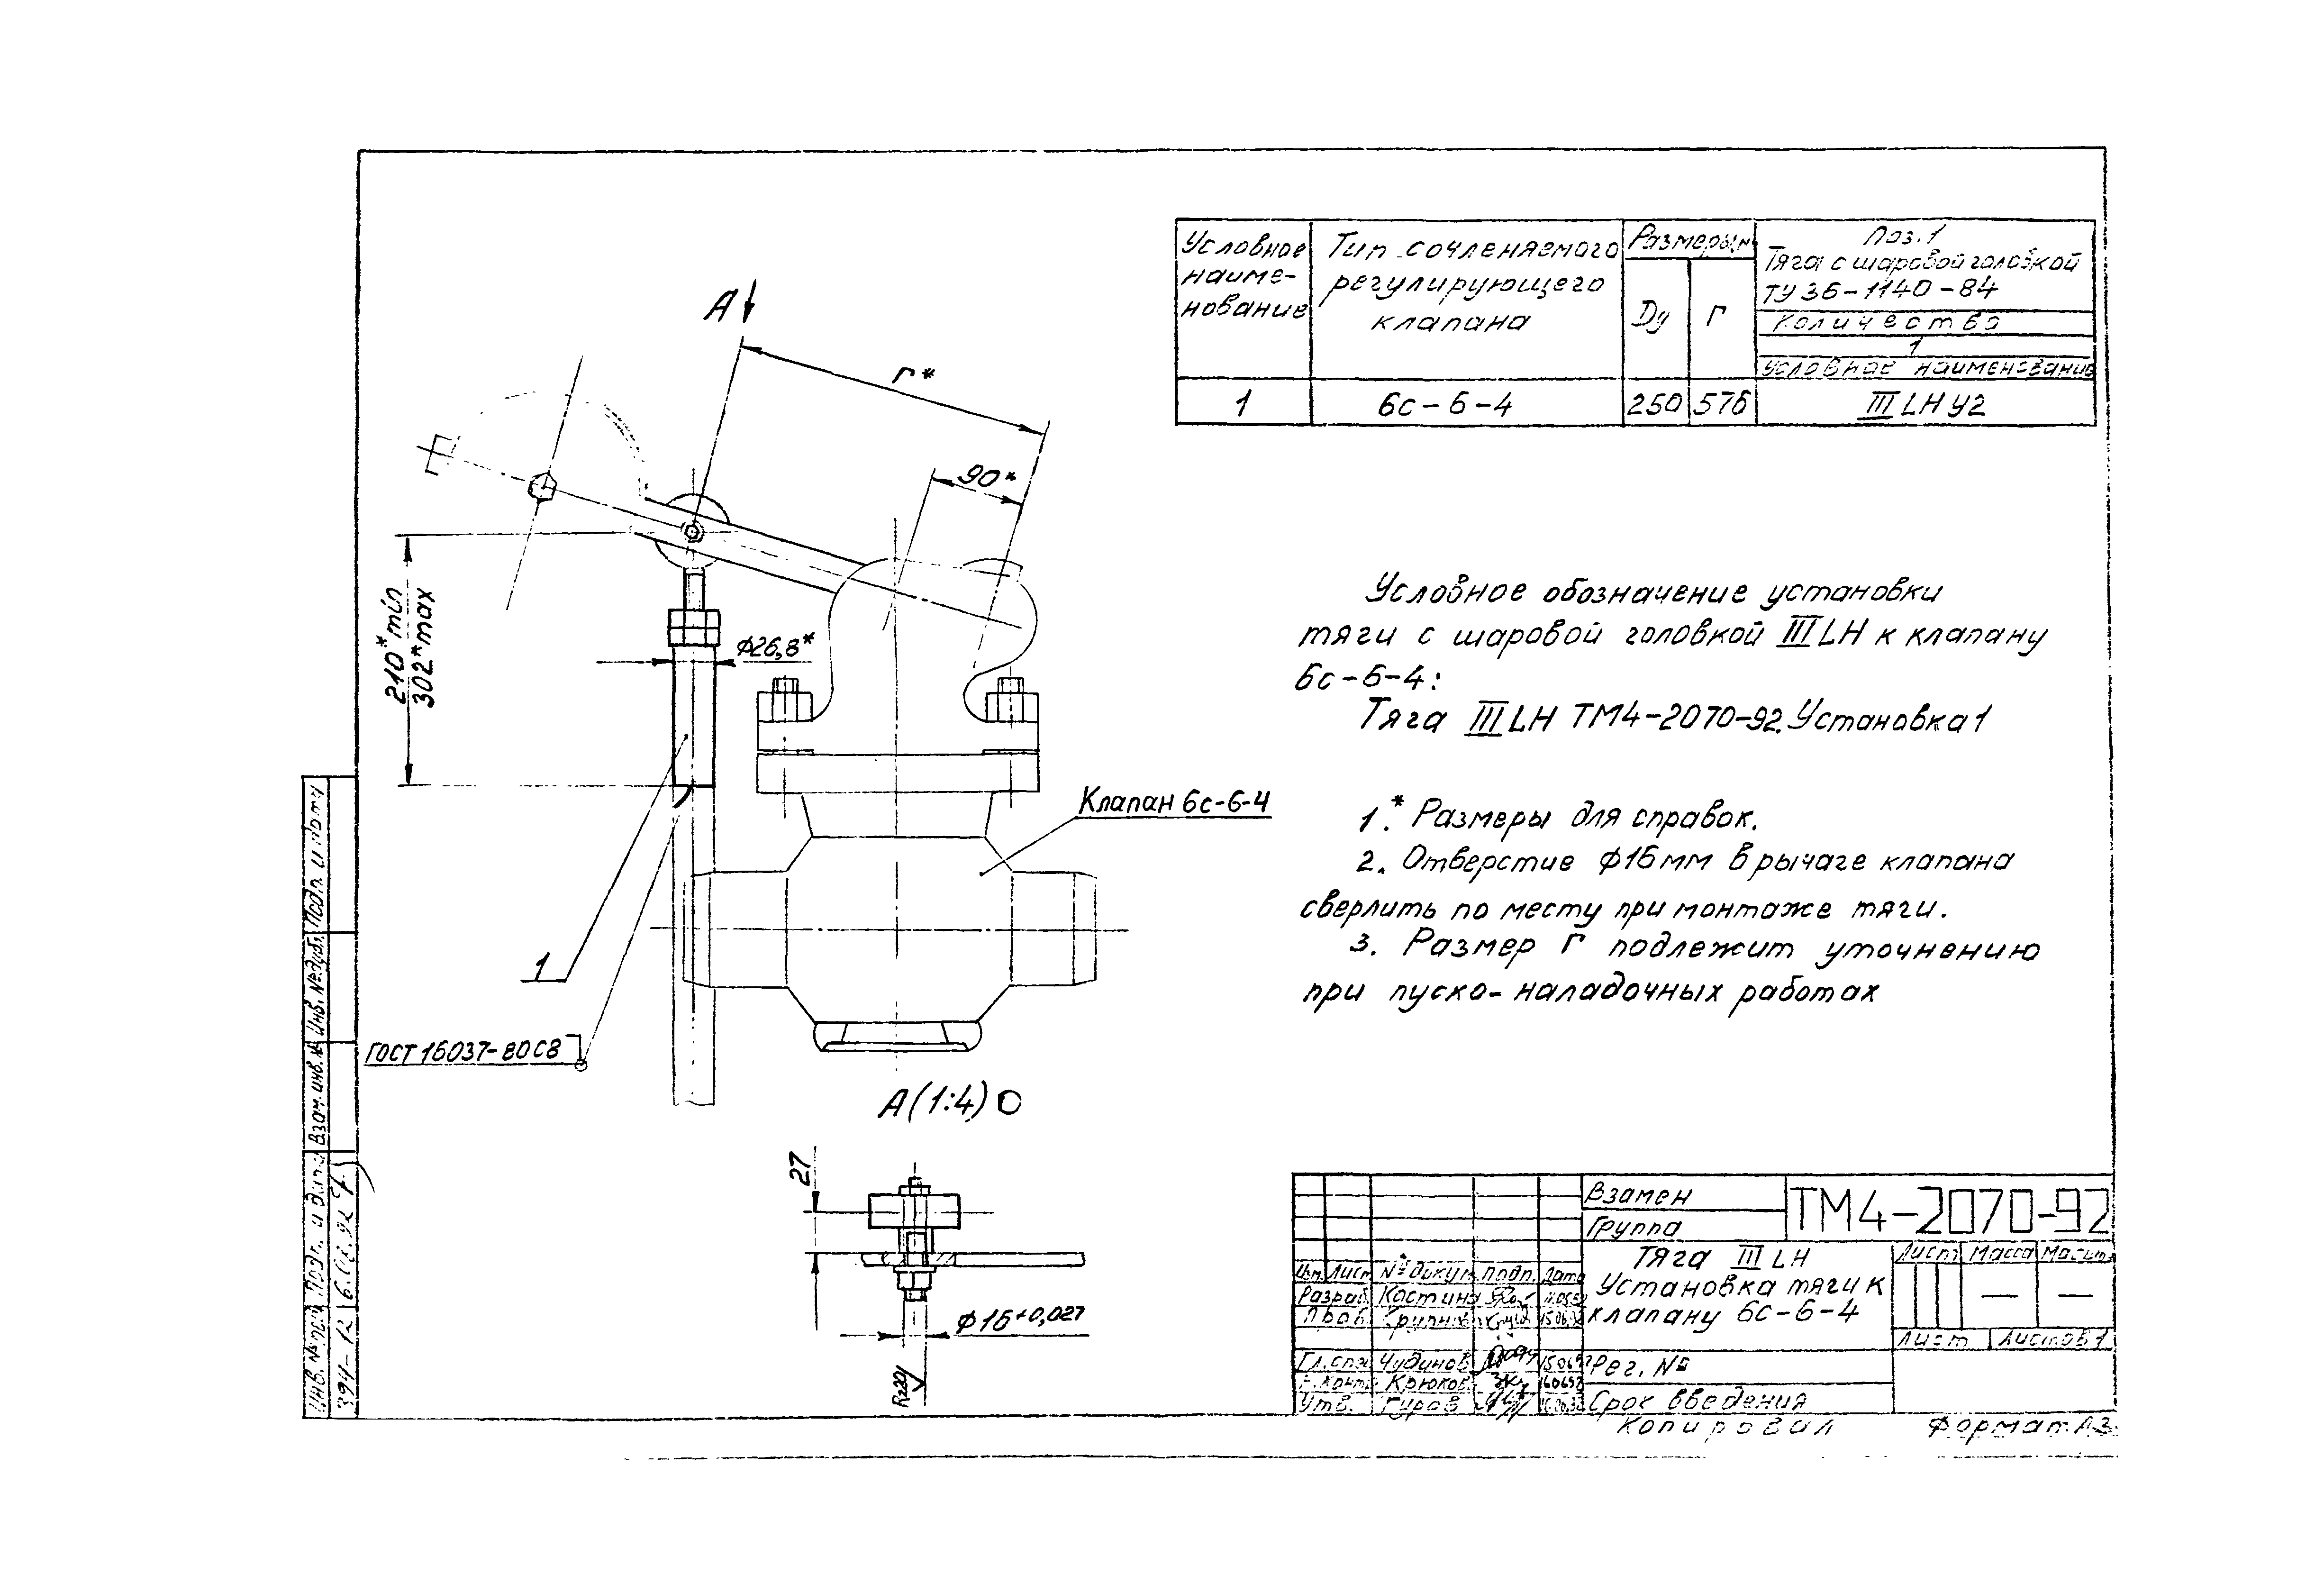 Условное
наиме-
нование
Тип сочленяемого
регулирующего
клапана
Размеры,м
Dу
Г
Поз.1
Тяга с шаровой головкой
ТУ 36-1140-84
Количество
1
Условное наименование
1
6с-6-4
250
576
III LH У2
А
Г*
90*
210* min
302* max
ф26,8*
1
Клапан 6с-6-4
ГОСТ 16037-80 С8
А(1:4)
27
ф16+0,027
Условное обозначение установки
тяги с шаровой головкой III LH к клапану
6с-6-4:
Тяга III LH ТМ4-2070-92. Установка 1
1.* Размеры для справок.
2. Отверстие ф16мм в рычаге клапана
сверлить по месту при монтаже тяги.
3. Размер Г подлежит уточнению
при пуско-наладочных работах
Подп. и дата
Инв. № дубл.
Взам. инв. №
Подп. и дата
Инв. № подл.
Взамен
Группа
ТМ4-2070-92
Тяга III LH
Установка тяги к
клапану 6с-6-4
Лист Масса Масшт.
— —
Лист Листов 1
Изм. Лист № докум. Подп. Дата
Разраб. Костина
Пров.
Гл. спец. Чудинов
Н. контр. Крюков
Утв. Гуров
Рег. №
Срок введения
Копировал
Формат А3